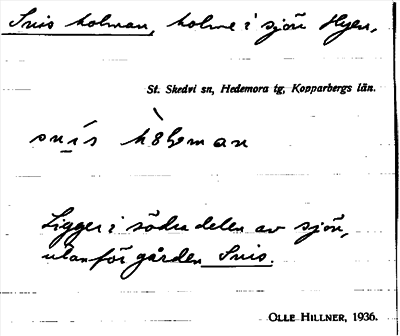 Snis holman, holme i sjön Hyen.
St. Skedvi sn, Hedemora tg, Kopparbergs län.
Ligger i södra delen av sjön,
utanför gården Snis.
OLLE HILLNER, 1936.